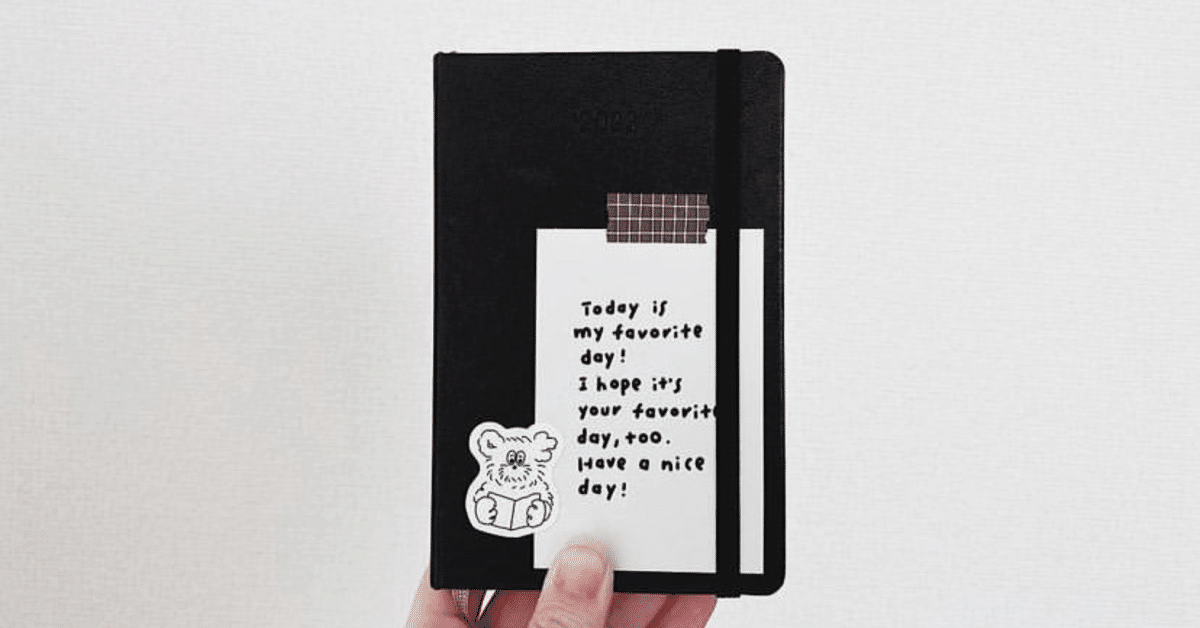 Today is
my favorite
day!
I hope it's
your favorit
day, too.
Have a nice
day!